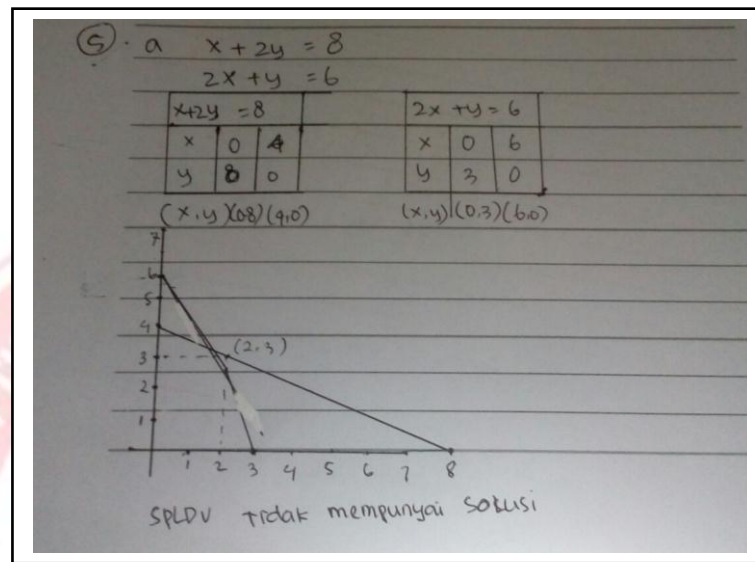 5. a x + 2y = 8
2x + y = 6
x+2y = 8
x 0 4
y 8 0
(x,y) (0,8) (4,0)
2x + y = 6
x 0 6
y 3 0
(x,y) (0,3) (6,0)
7
6
5
4
3
2
1
(2,3)
1 2 3 4 5 6 7 8
SPLDV tidak mempunyai solusi